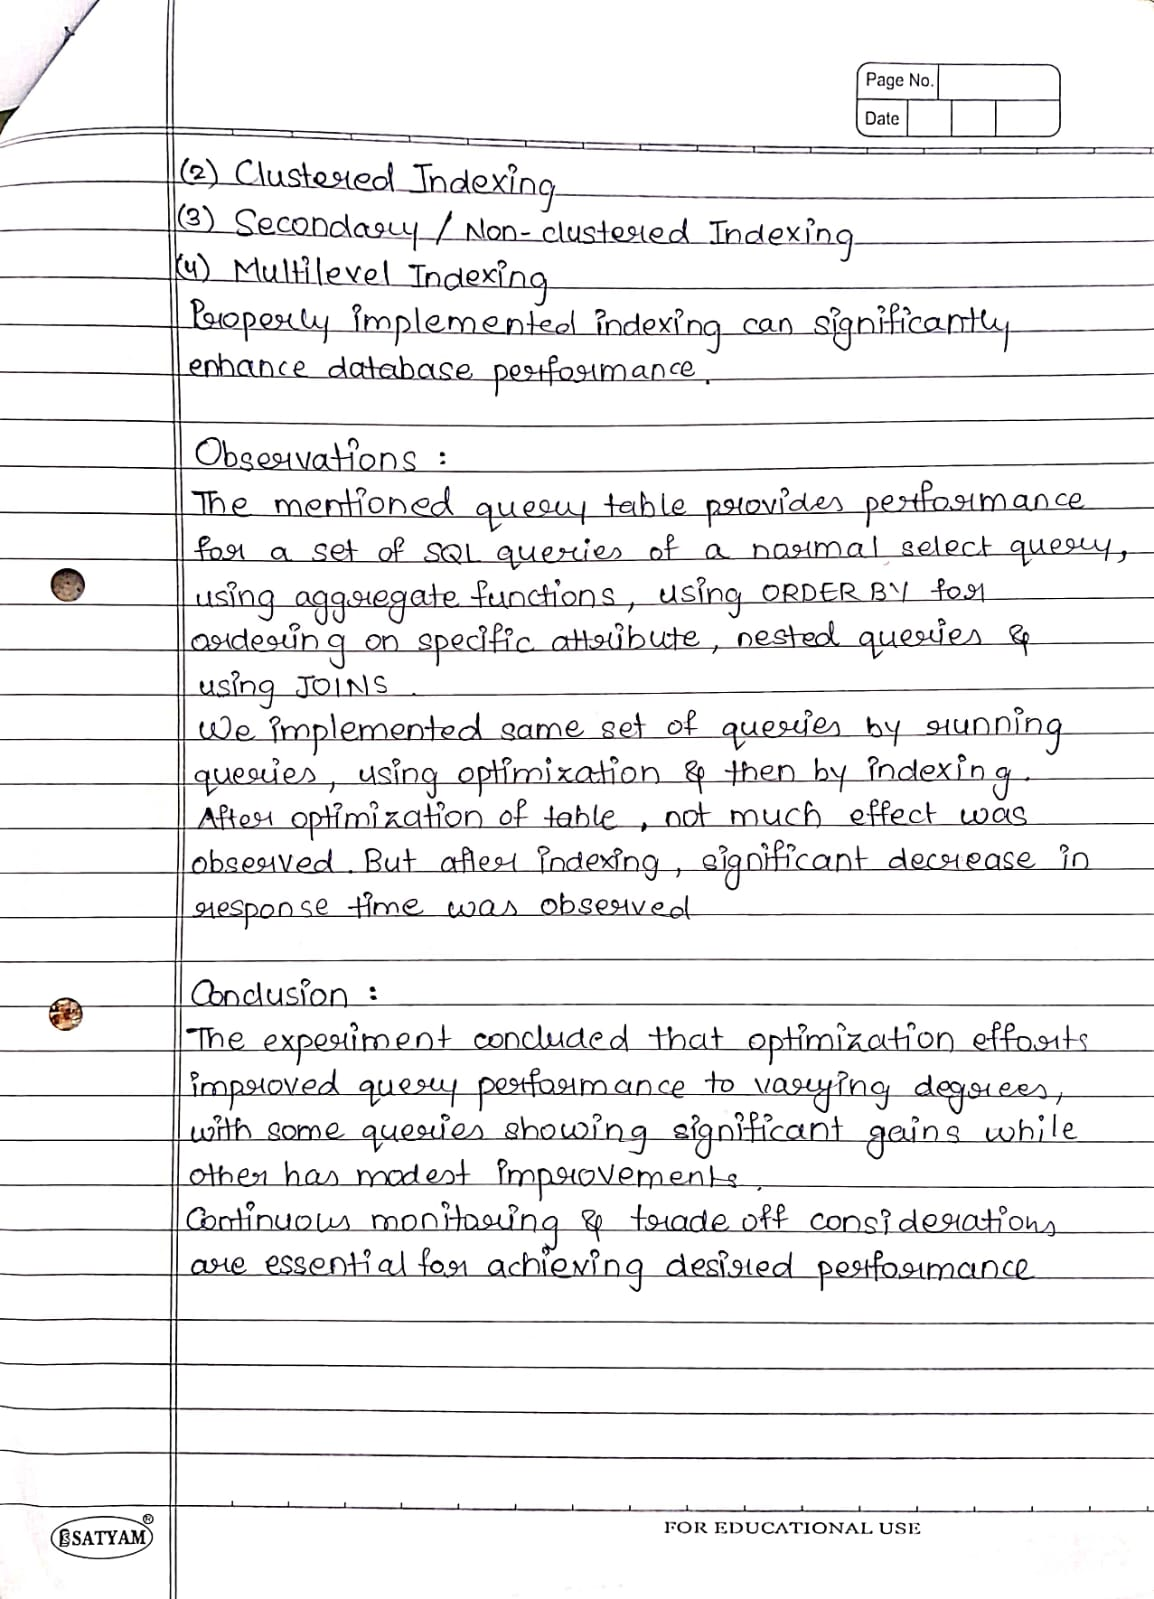 Page No.
Date
(2) Clustered Indexing
(3) Secondary / Non-clustered Indexing
(4) Multilevel Indexing
Properly implemented indexing can significantly
enhance database performance.
Observations :
The mentioned query table provides performance
for a set of SQL queries of a normal select query,
using aggregate functions, using ORDER BY for
ordering on specific attribute, nested queries &
using JOINS.
We implemented same set of queries by running
queries, using optimization & then by indexing.
After optimization of table, not much effect was
observed. But after indexing, significant decrease in
response time was observed
Conclusion :
The experiment concluded that optimization efforts
improved query performance to varying degrees,
with some queries showing significant gains while
other has modest improvements.
Continuous monitoring & trade off considerations
are essential for achieving desired performance
SATYAM®
FOR EDUCATIONAL USE